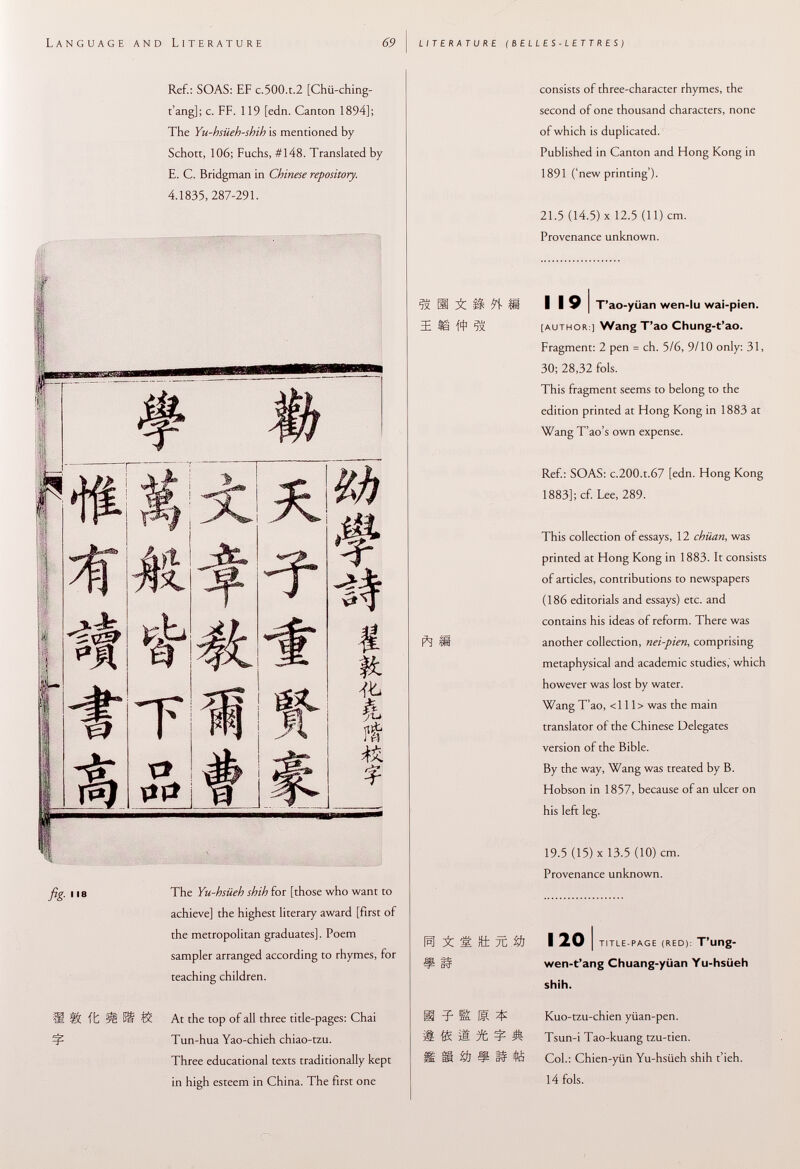 LANGUAGE AND LITERATURE 69
Ref.: SOAS: EF c.500.t.2 [Chü-ching-
t'ang]; c. FF. 119 [edn. Canton 1894];
The Yu-hsüeh-shih is mentioned by
Schott, 106; Fuchs, #148. Translated by
E. C. Bridgman in Chinese repository.
4.1835, 287-291.
勸學
幼學詩 翟敦化堯階校字
天子重賢豪
文章教爾曹
萬般皆下品
惟有讀書高
fig. 118
The Yu-hsüeh shih for [those who want to
achieve] the highest literary award [first of
the metropolitan graduates]. Poem
sampler arranged according to rhymes, for
teaching children.
翟敦化堯階校
字
At the top of all three title-pages: Chai
Tun-hua Yao-chieh chiao-tzu.
Three educational texts traditionally kept
in high esteem in China. The first one
LITERATURE (BELLES-LETTRES)
consists of three-character rhymes, the
second of one thousand characters, none
of which is duplicated.
Published in Canton and Hong Kong in
1891 ('new printing').
21.5 (14.5) x 12.5 (11) cm.
Provenance unknown.
....................
弢園文錄外編
王韜仲弢
119 T'ao-yüan wen-lu wai-pien.
[AUTHOR:] Wang T'ao Chung-t'ao.
Fragment: 2 pen = ch. 5/6, 9/10 only: 31,
30; 28,32 fols.
This fragment seems to belong to the
edition printed at Hong Kong in 1883 at
Wang T'ao's own expense.
Ref.: SOAS: c.200.t.67 [edn. Hong Kong
1883]; cf. Lee, 289.
This collection of essays, 12 chüan, was
printed at Hong Kong in 1883. It consists
of articles, contributions to newspapers
(186 editorials and essays) etc. and
contains his ideas of reform. There was
內編
another collection, nei-pien, comprising
metaphysical and academic studies, which
however was lost by water.
Wang T'ao, <111> was the main
translator of the Chinese Delegates
version of the Bible.
By the way, Wang was treated by B.
Hobson in 1857, because of an ulcer on
his left leg.
19.5 (15) x 13.5 (10) cm.
Provenance unknown.
....................
同文堂壯元幼
學詩
120 TITLE-PAGE (RED): T'ung-
wen-t'ang Chuang-yüan Yu-hsüeh
shih.
國子監原本
Kuo-tzu-chien yüan-pen.
遵依道光字典
Tsun-i Tao-kuang tzu-tien.
鑑韻幼學詩帖
Col.: Chien-yün Yu-hsüeh shih t'ieh.
14 fols.